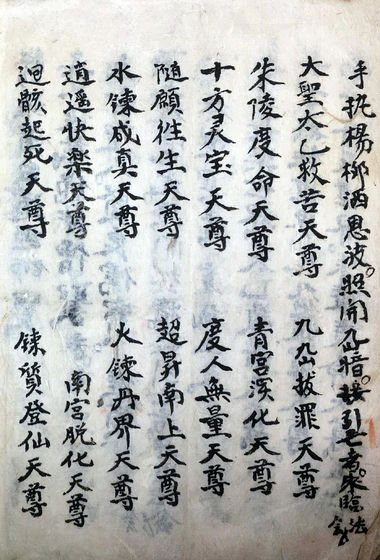 手执楊柳洒恩波。照開幽暗。接引亡者。來臨法會
大聖太乙救苦天尊 九幽拔罪天尊
朱陵度命天尊 青宮化天尊
十方灵宝天尊 度人無量天尊
隨願徃生天尊 超昇南上天尊
水鍊成真天尊 火鍊丹界天尊
逍遥快楽天尊 南宮脱化天尊
迴骸起死天尊 鍊質登仙天尊